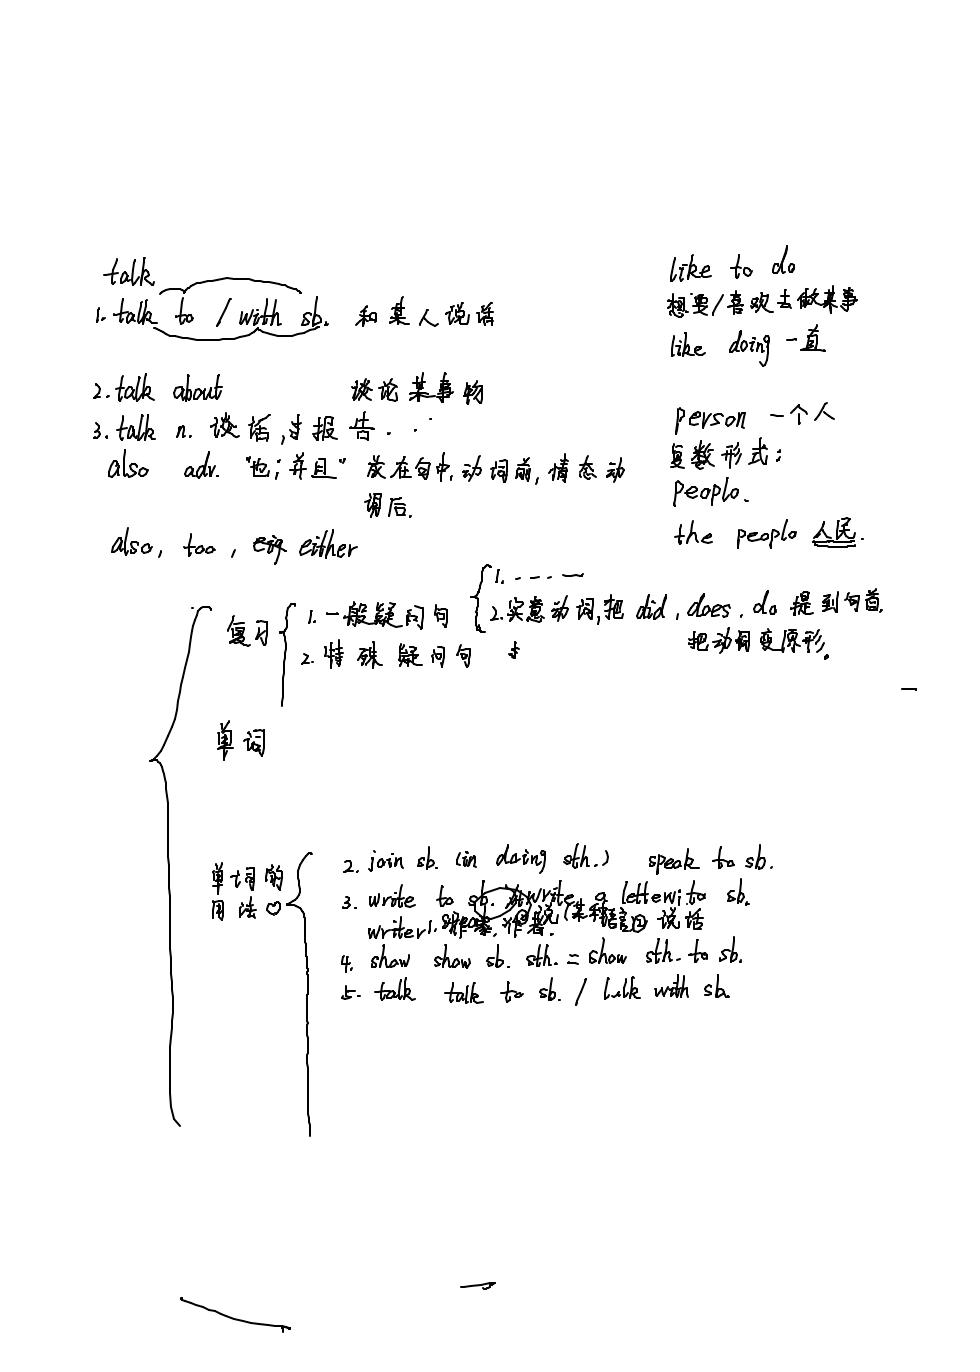 talk
1. talk to / with sb. 和某人说话
2. talk about 谈论某事物
3. talk n. 谈话, 报告...
also adv. "也; 并且" 放在句中, 动词前, 情态动
词后.
also, too, either
like to do
想要/喜欢去做某事
like doing 一直
person 一个人
复数形式:
peoplo.
the peoplo 人民.
复习
1. 一般疑问句
2. 特殊疑问句
1. ....
2. 实意动词, 把 did, does, do 提到句首,
把动词变原形.
单词
单词的
用法♡
2. join sb. (in doing sth.) speak to sb.
3. write to sb. write a letter to sb.
writer 作家, 作者.
1. speak 说 (某种语言) ② 说话
4. show show sb. sth. = show sth. to sb.
5. talk talk to sb. / talk with sb.